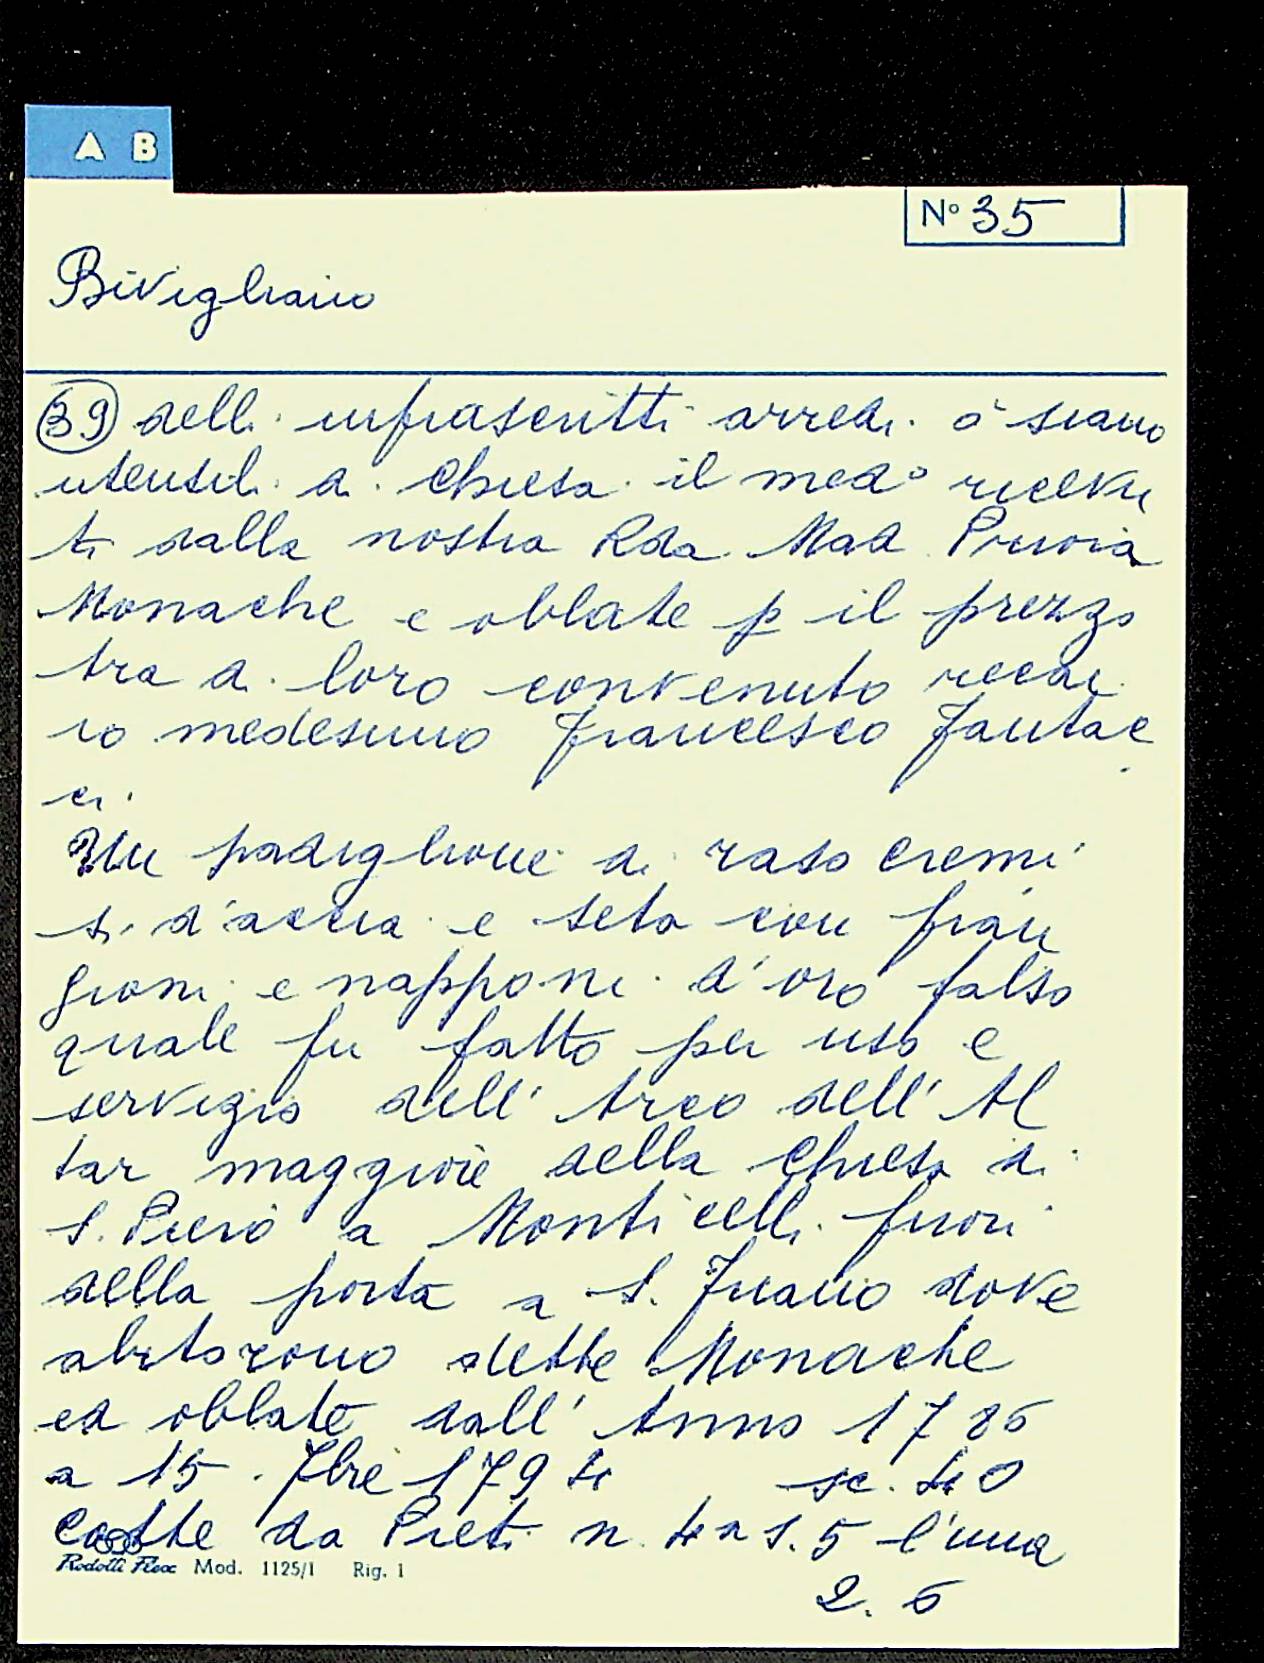 A B
Nº 35
Bivigliano
39 delli infrascritti arredi ò siano
utensili di Chiesa il medº ricevu
ti dalla nostra Rda Mad Priora
Monache e oblate p il prezzo
tra di loro convenuto
io medesimo Francesco Fantac
ci.
Un padiglione di raso cremi
si d'accia e seta con fran
gioni e napponi d'oro falso
quale fu fatto per uso e
servigio dell'Arco dell'Al
tar maggiore della Chiesa di
S. Piero a Monticelli fuori
della porta a S. Friano dove
abitorono dette Monache
ed oblate dall'Anno 1786
a 15. 7bre 1794 sc. 40
Cotte da Preti n. 4 a s. 5 l'una
2. 6
Rodolfi Flex Mod. 1125/1 Rig. 1